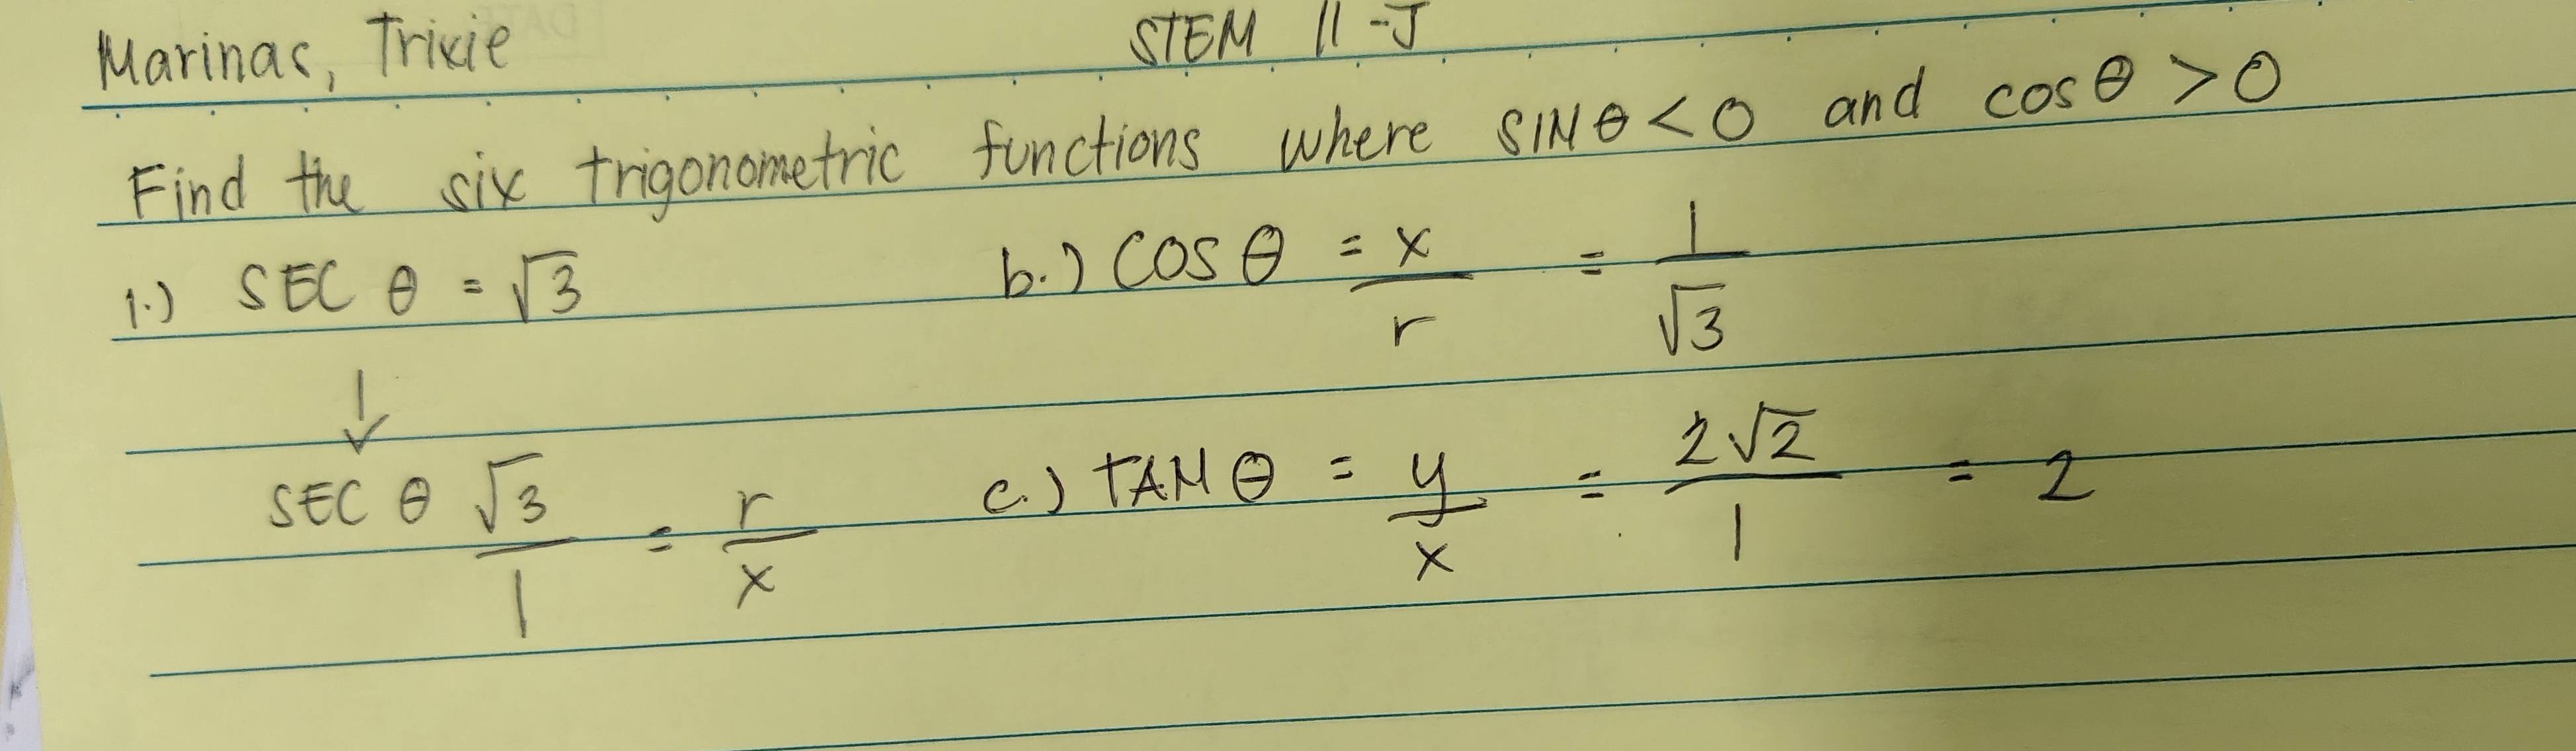 Marinas, Trixie STEM 11-J
Find the six trigonometric functions where SIN θ < 0 and cos θ > 0
1.) SEC θ = √3
b.) COS θ = x/r = 1/√3
↓
SEC θ √3/1 = r/x
c.) TAN θ = y/x = 2√2/1 = 2